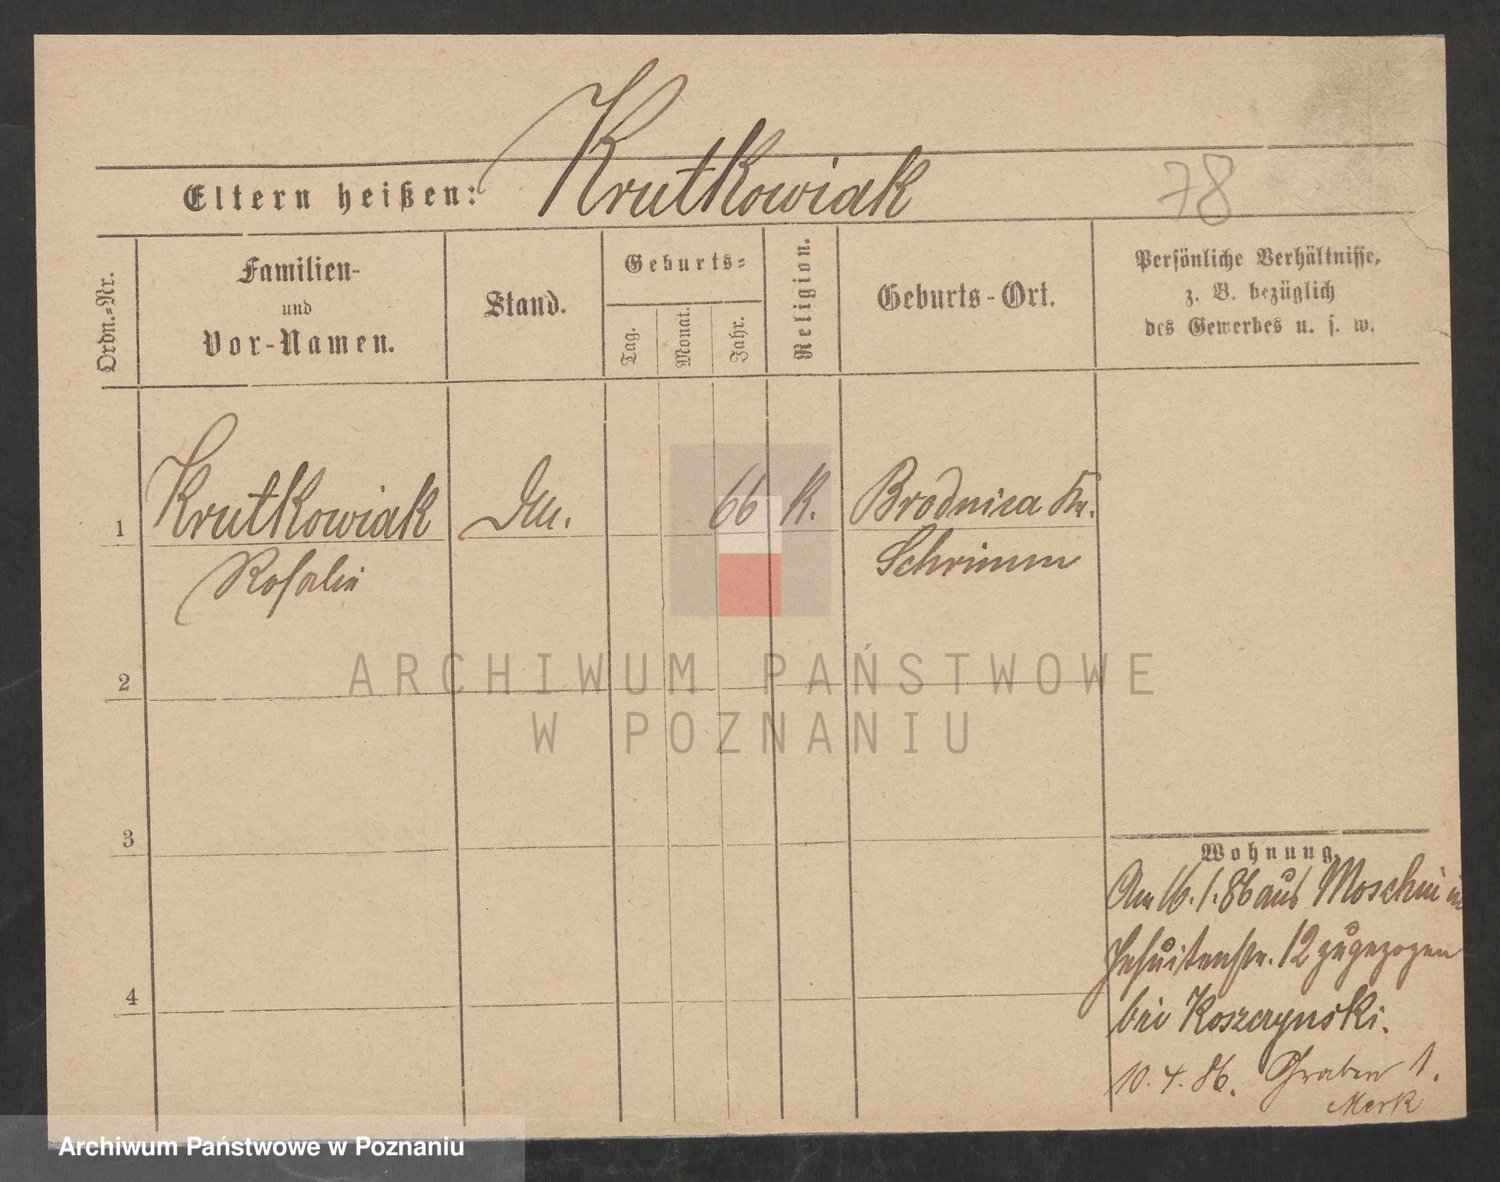 Krutkowiak
Eltern heißen:
78
Ordn.-Nr.
Familien-
und
Vor-Namen.
Stand.
Geburts-
Tag.
Monat.
Jahr.
Religion.
Geburts-Ort.
Persönliche Verhältnisse,
z. B. bezüglich
des Gewerbes u. s. w.
1 Krutkowiak 66 K. Brodnica Kr.
Rosalie Schrimm
2
ARCHIWUM PAŃSTWOWE
W POZNANIU
3
Wohnung.
Am 16.1.86 aus Moschin in
Jesuitenstr. 12 zugezogen
4
bei Koszczynski.
10.4.86. Graben 1.
Merk
Archiwum Państwowe w Poznaniu